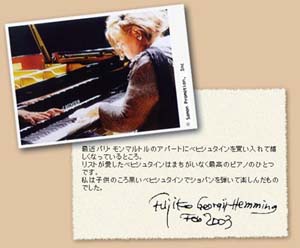 © Samon Promotion, Inc
最近パリ・モンマルトルのアパートにベヒシュタインを買い入れて嬉
しくなっているところ。
リストが愛したベヒシュタインはまちがいなく最高のピアノのひとつ
です。
私は子供のころ黒いベヒシュタインでショパンを弾いて楽しんだもの
でした。
Fujiko Georgii-Hemming
Feb 2003